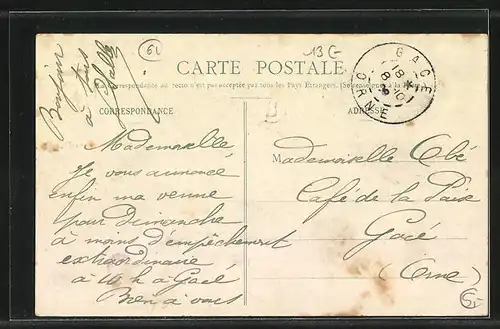 61
13 G
Bonjour
à tous
CARTE POSTALE
La Correspondance au recto n'est pas acceptée par tous les Pays Étrangers. (Se renseigner à la Poste)
GACÉ
18
8
10
ORNE
CORRESPONDANCE
ADRESSE
Mademoiselle,
Je vous annonce
enfin ma venue
pour Dimanche
à moins d'empêchement
extraordinaire
à 10 h à Gacé
Bien à vous
Mademoiselle Obé
Café de la Paix
Gacé
(Orne)